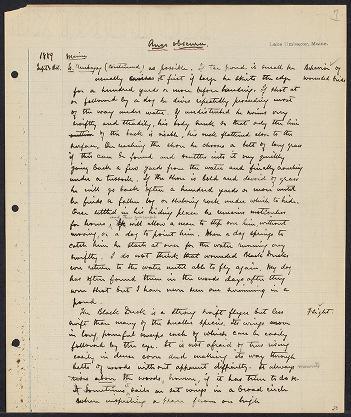 Anas obscura.
Lake Umbagog, Maine.
1889 Maine
L. Umbagog (continued) as possible. If the pond is small he Behavior of
usually crosses it first if large he skirts the edge wounded birds
for a hundred yards or more before landing. If shot at
or followed by a dog he dives repeatedly proceeding most
of the way under water. If undisturbed he swims very
swiftly and steadily, his body sunk so that only the
of the back is visible, his neck flattened also to the
surface. On reaching the shore he chooses a belt of long grass
if this can be found and enters it very quietly
going back a few yards from the water and finally crouching
under a tussock. If the shore is bold and devoid of grass
he will go back often a hundred yards or more until
he finds a fallen log or shelving rock under which to hide.
Once settled in his hiding place he remains motionless
for hours, will allow a man to step over him without
moving, or a dog to point him. When a dog springs to
catch him he starts at once for the water running very
swiftly. I do not think that wounded Black Ducks
ever return to the water until able to fly again. My dog
has often found them in the woods days after they
were shot but I have never seen one swimming in a
pond.
The Black Duck is a strong swift flyer but less Flight.
swift than many of the smaller species, its wings move
in long powerful sweeps each of which can be easily
followed by the eye. It is not afraid of rising
easily in dense cover and making its way through
belts of woods without apparent difficulty. It always
above the woods, however, if it has time to do so.
It sometimes sails on set wings in a broad circle
when inspecting a place from on high